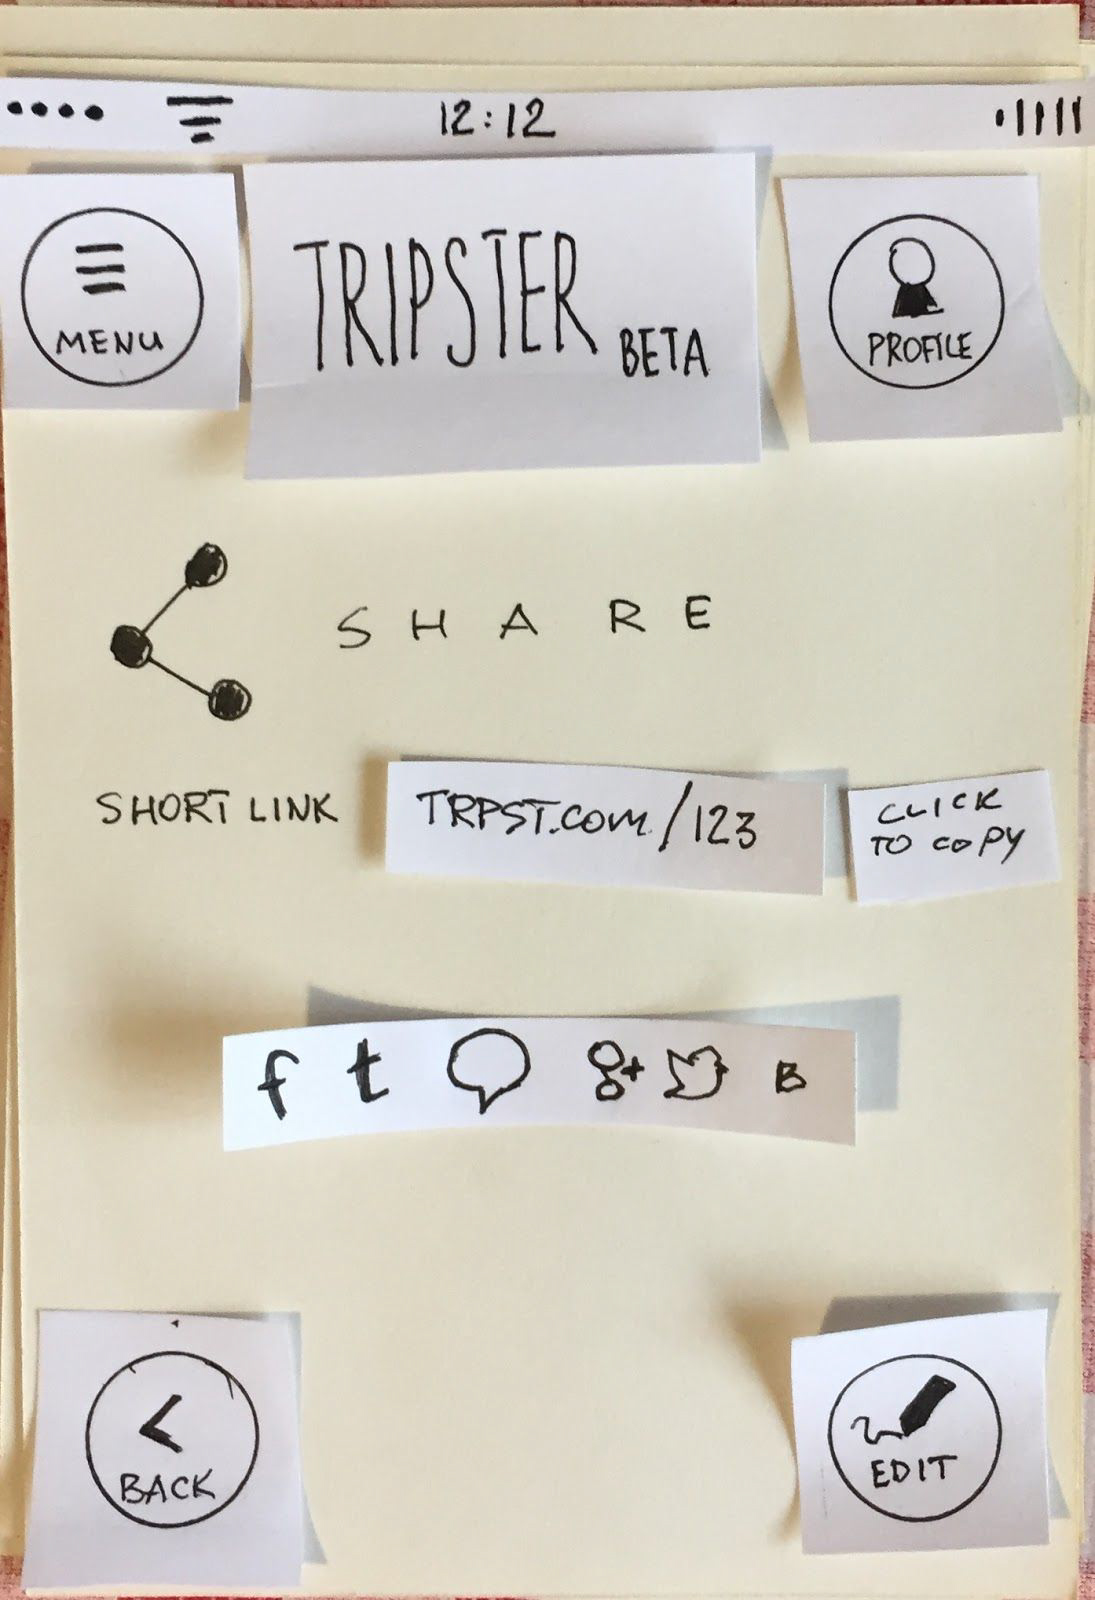 12:12
MENU
TRIPSTER BETA
PROFILE
SHARE
SHORT LINK
TRPST.com/123
CLICK
TO COPY
f t g+ B
BACK
EDIT